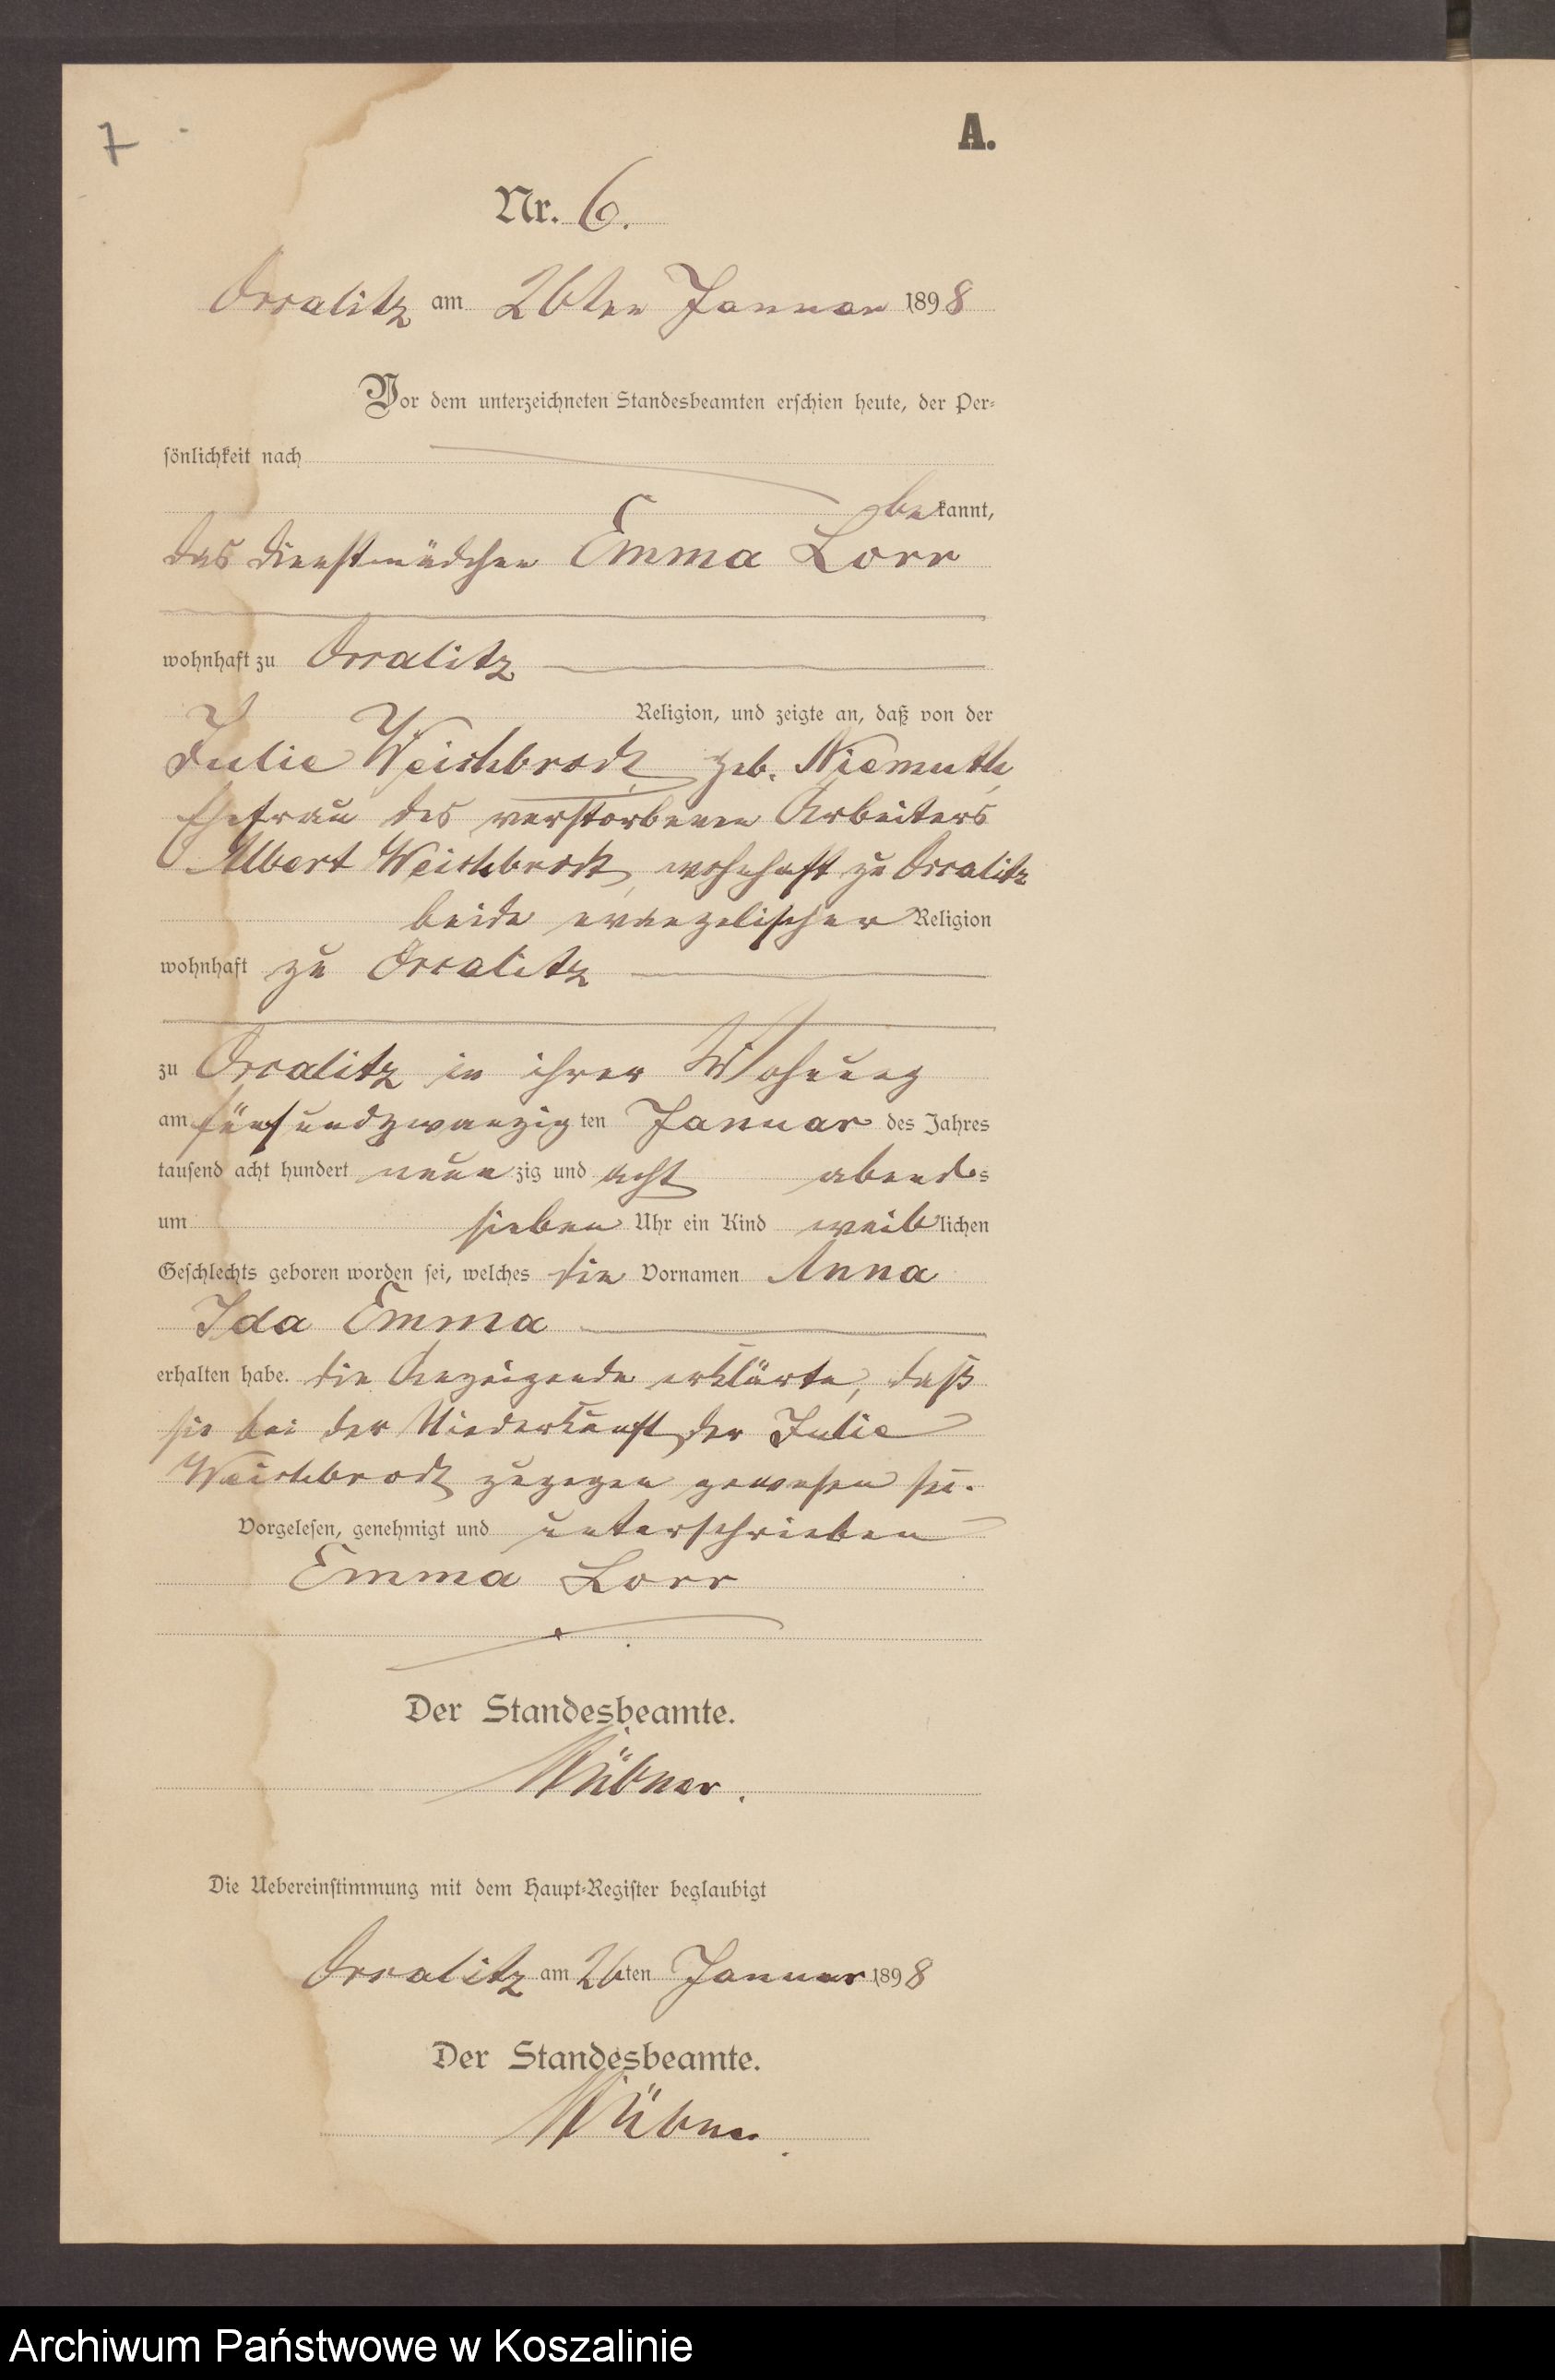 7
A.
Nr. 6.
am 26ten Januar 1898
Vor dem unterzeichneten Standesbeamten erschien heute, der Per-
sönlichkeit nach
bekannt,
das Dienstmädchen Emma Lorr
wohnhaft zu
Religion, und zeigte an, daß von der
Julie geb. Niemuth,
Ehefrau des verstorbenen Arbeiters
Albert wohnhaft zu
beide evangelischer Religion
wohnhaft zu
zu in ihrer Wohnung
am fünfundzwanzigten Januar des Jahres
tausend acht hundert neunzig und acht abends
um sieben Uhr ein Kind weiblichen
Geschlechts geboren worden sei, welches die Vornamen Anna
Ida Emma
erhalten habe. Die Anzeigende erklärte, daß
sie bei der Niederkunft der Julie
zugegen gewesen sei.
Vorgelesen, genehmigt und unterschrieben
Emma Lorr
Der Standesbeamte.
Die Uebereinstimmung mit dem Haupt-Register beglaubigt
am 26ten Januar 1898
Der Standesbeamte.
Archiwum Państwowe w Koszalinie